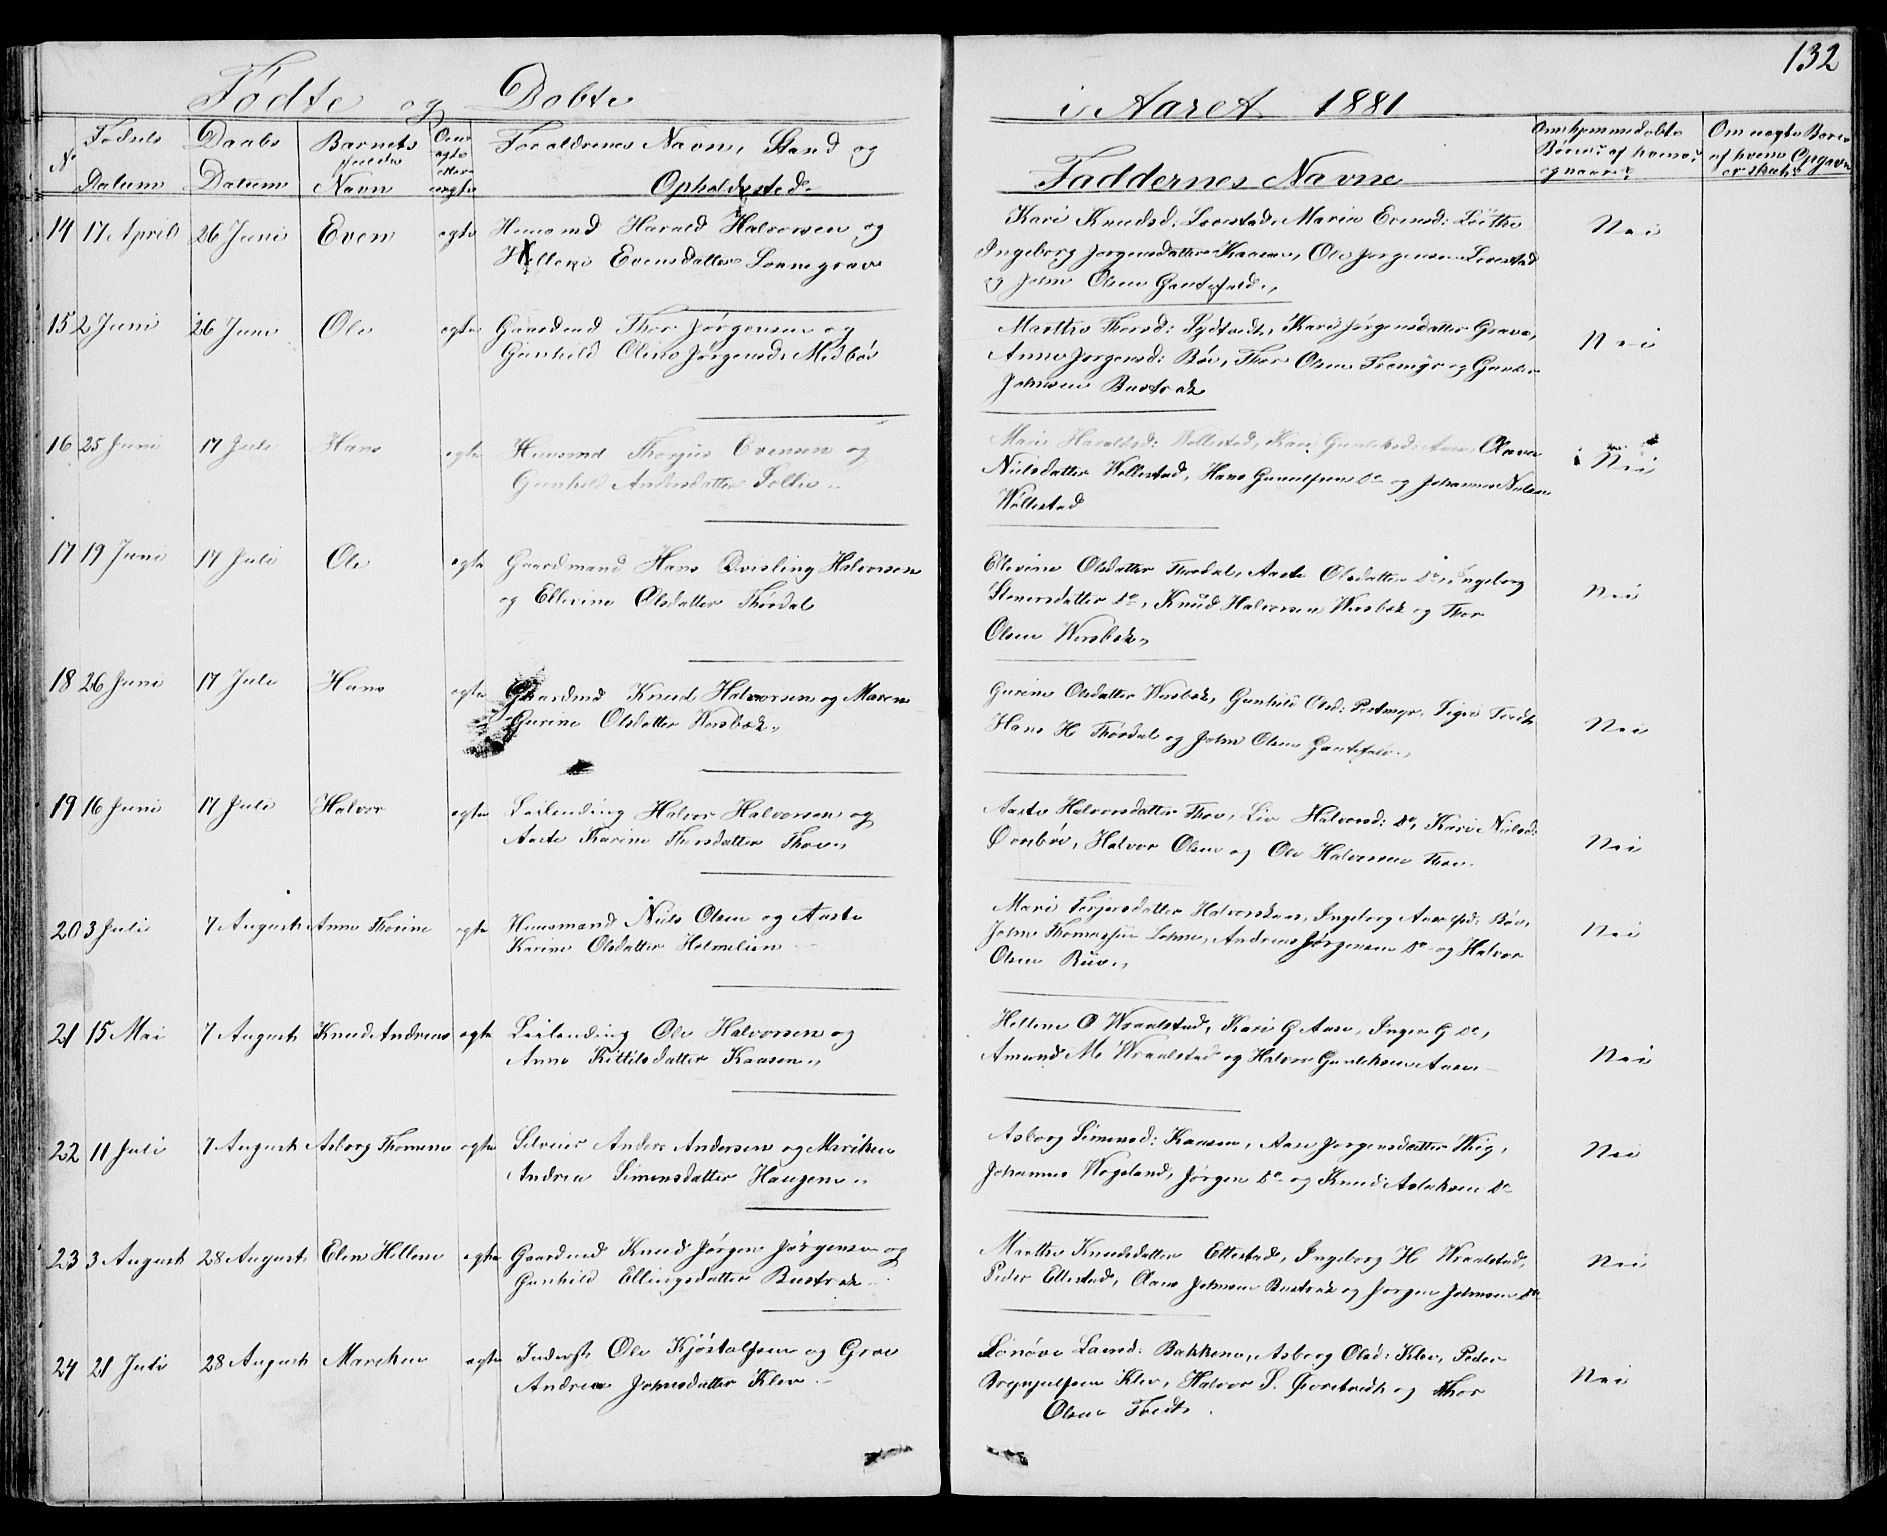 132
Fødte og Døbte i Aaret 1881
No Fødsels Datum Daabs Datum Barnets fulde Navn Om ægte eller uægte Forældrenes Navn, Stand og Opholdssted Faddernes Navne Om hjemmedøbte Børn: af hvem og naar? Om uægte Børn af hvem Opgaven er skeet?
14 17 April 26 Juni Even egte Huusmd Harald Halvorsen og
Evensdatter
Kari Knudsd. Maria Evensd:
Ingeborg Jørgensdatter Kaasen, Ole Jørgensen
og John Olsen Gautefald.
Nei
15 2 Juni 26 Juni Ole egte Gaardmd Thor Jørgensen og
Gunhild Oline Jørgensd. Medbøe
Marthe Thorsd: Kari Jørgensdatter Grava,
Anne Jørgensd: Bøe, Thor Olsen og Gunder
Johnsen Bustrak
Nei
16 25 Juni 17 Juli Hans egte Huusmd Thorjus Evensen og
Gunhild Andersdatter
Mari Haraldsd: Wollestad, Kari Aase,
Nielsdatter Wollestad, Hans do og Johannes Nielsen
Wollestad
Nei
17 19 Juni 17 Juli Ole egte Gaardmand Hans Qvisling Halvorsen
og Ellevine Olsdatter Thordal
Ellevine Olsdatter Thordal, Aaste Olsdatter do, Ingeborg
do, Knud Halvorsen Wersbæk og Thor
Olsen Wersbæk,
Nei
18 26 Juni 17 Juli Hans egte Gaardmd Knud Halvorsen og Maren
Gurine Olsdatter Wersbæk,
Gurine Olsdatter Wersbæk, Gunhild Olsd:
Hans H Thordal og John Olsen Gautefald.,
Nei
19 16 Juni 17 Juli Halvor egte Leilending Halvor Halvorsen og
Aaste Karine Thorsdatter Thoe,,
Aaste Halvorsdatter Thoe, Liv Halvorsd: do, Kari Nielsd:
Halvor Olsen og Ole Halvorsen Thoe.
Nei
20 3 Juli 7 August Anne Thorine egte Huusmand Niels Olsen og Aaste
Karine Olsdatter Holmelien
Mari Halvorskaas, Ingeborg Bøe,
John og Halvor
Olsen
Andreas Jørgensen do
Nei
21 15 Mai 7 August Knud Andreas egte Leilending Ole Halvorsen og
Anne Kittilsdatter Kaasen,,
Hellene O Wraalstad, Kari G Aase, Inger G do,
Amund M. Wraalstad og Halvor Gunleksen Aase
Nei
22 11 Juli 7 August Asborg Thomine egte Selveier Anders Andersen og Mariken
Andrea Simonsdatter Haugen,,
Asborg Simonsd: Kaasen, Aase Jørgensdatter
Johannes Wogeland, Jørgen do og Knud Aslaksen do
Nei
23 3 August 28 August Elen Hellene egte Gaardmd Knud Jørgen Jørgensen og
Gunhild Ellingsdatter Bustrak
Marthe Knudsdatter Ettestad, Ingeborg H Wraalstad,
Peder Ettestad, Johnsen Bustrak og Jørgen Johnsen do
Nei
24 21 Juli 28 August Mareken egte Inderst Ole Kjøstolfsen og Groe
Andrea Johnsdatter Klev
Bakkene, Asborg Olsd: Klev, Peder
Brynjulfsen Klev, Halvor S. og Thor
Olsen Tvedt.
Nei